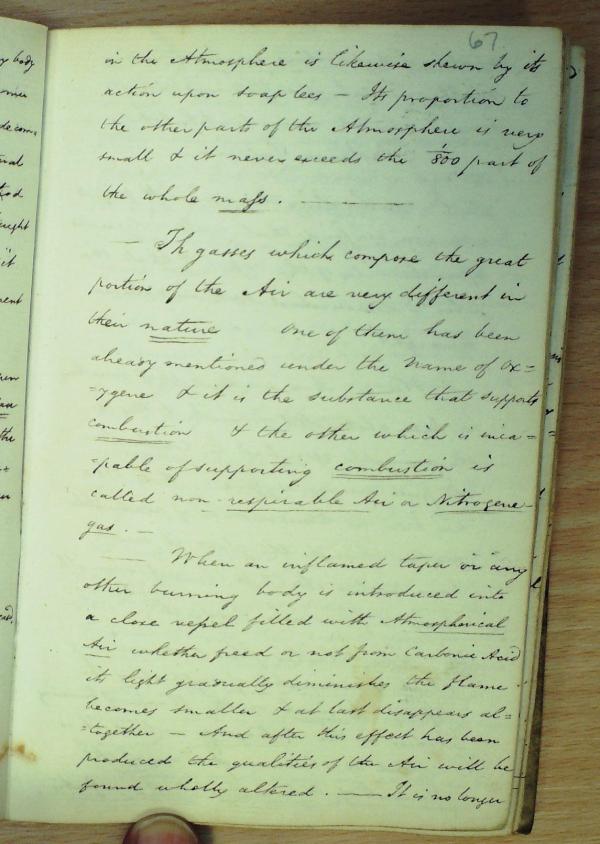 67
in the Atmosphere is likewise shewn by its
action upon soap lees — Its proportion to
the other parts of the Atmosphere is very
small & it never exceeds the 1/800 part of
the whole mass. ————
— Th gasses which compose the great
portion of the Air are very different in
their nature One of them has been
already mentioned under the Name of Ox=
=ygene & it is the substance that supports
combustion & the other which is inca=
=pable of supporting combustion is
called non-respirable Air or Nitrogene
gas. —
— When an inflamed taper or any
other burning body is introduced into
a close vessel filled with Atmospherical
Air whether freed or not from Carbonic Acid
its light gradually diminishes the flame
becomes smaller & at last disappears al=
=together — And after this effect has been
produced the qualities of the Air will be
found wholly altered. —— It is no longer